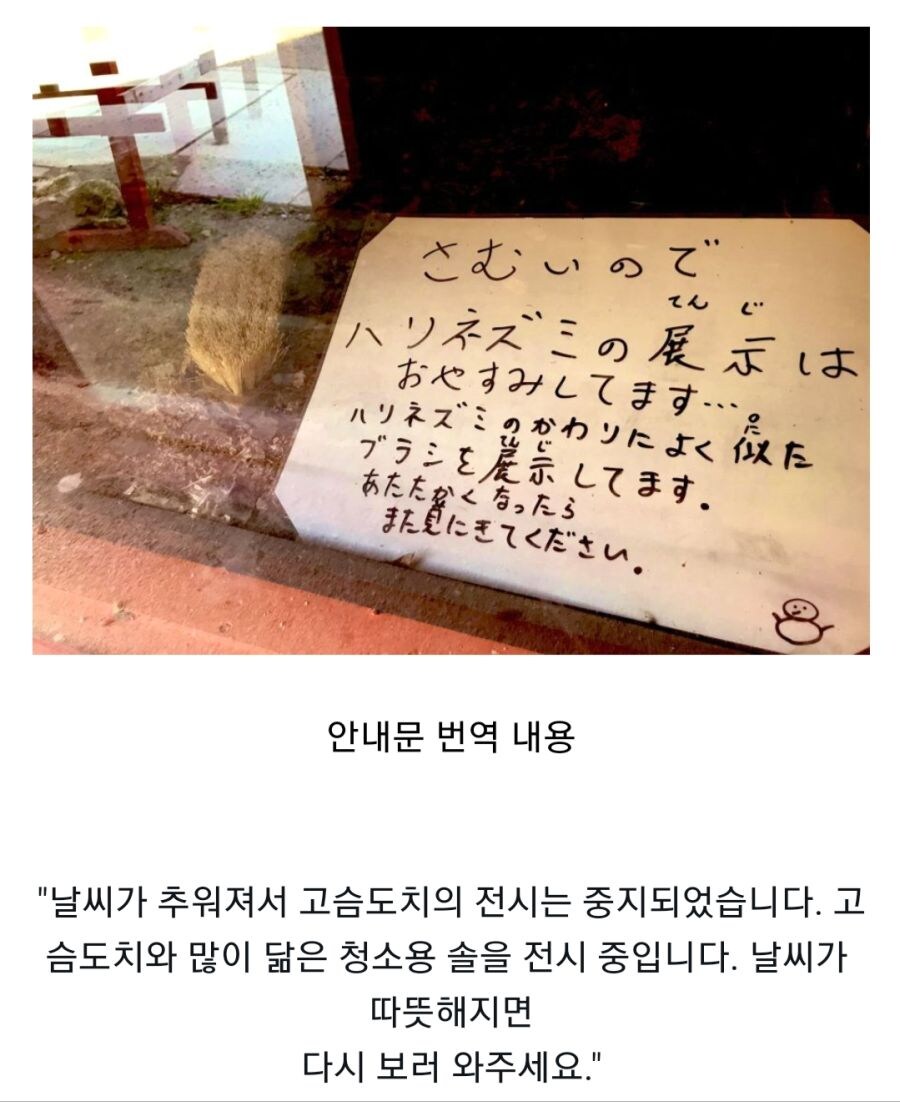 さむいので
てんじ
ハリネズミの展示は
おやすみしてます…
に
ハリネズミのかわりによく似た
てんじ
ブラシを展示してます。
あたたかくなったら
また見にきてください。
안내문 번역 내용
"날씨가 추워져서 고슴도치의 전시는 중지되었습니다. 고
슴도치와 많이 닮은 청소용 솔을 전시 중입니다. 날씨가
따뜻해지면
다시 보러 와주세요."